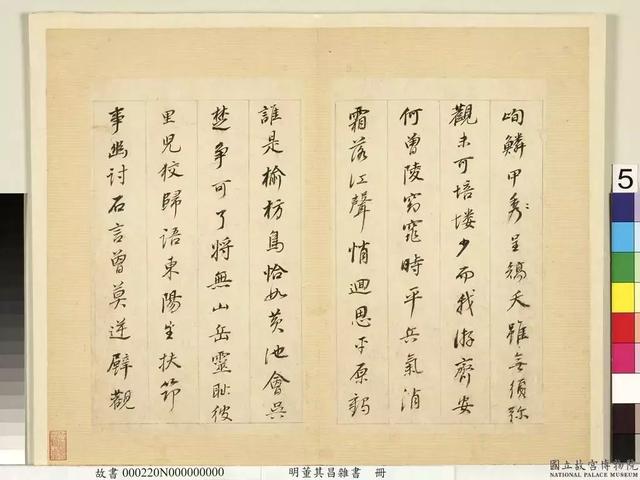 峋鱗甲秀呈鴻天雖無須彌
觀未可培塿少而我游齊安
何曾陵窈窕時平兵氣消
霜落江聲悄迴思平原
誰是榆枋鳥恰如黃池會吳
楚爭可了將無山岳靈恥彼
里兒狡歸語東陽生扶筇
事幽討石言曾莫逆壁觀
5
故書 000220N000000000 明董其昌雜書 冊
國立故宮博物院
NATIONAL PALACE MUSEUM